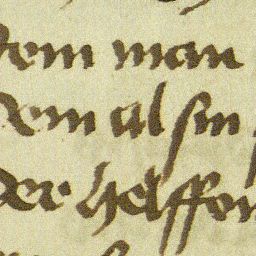 dem man
dem al sin
der helffen